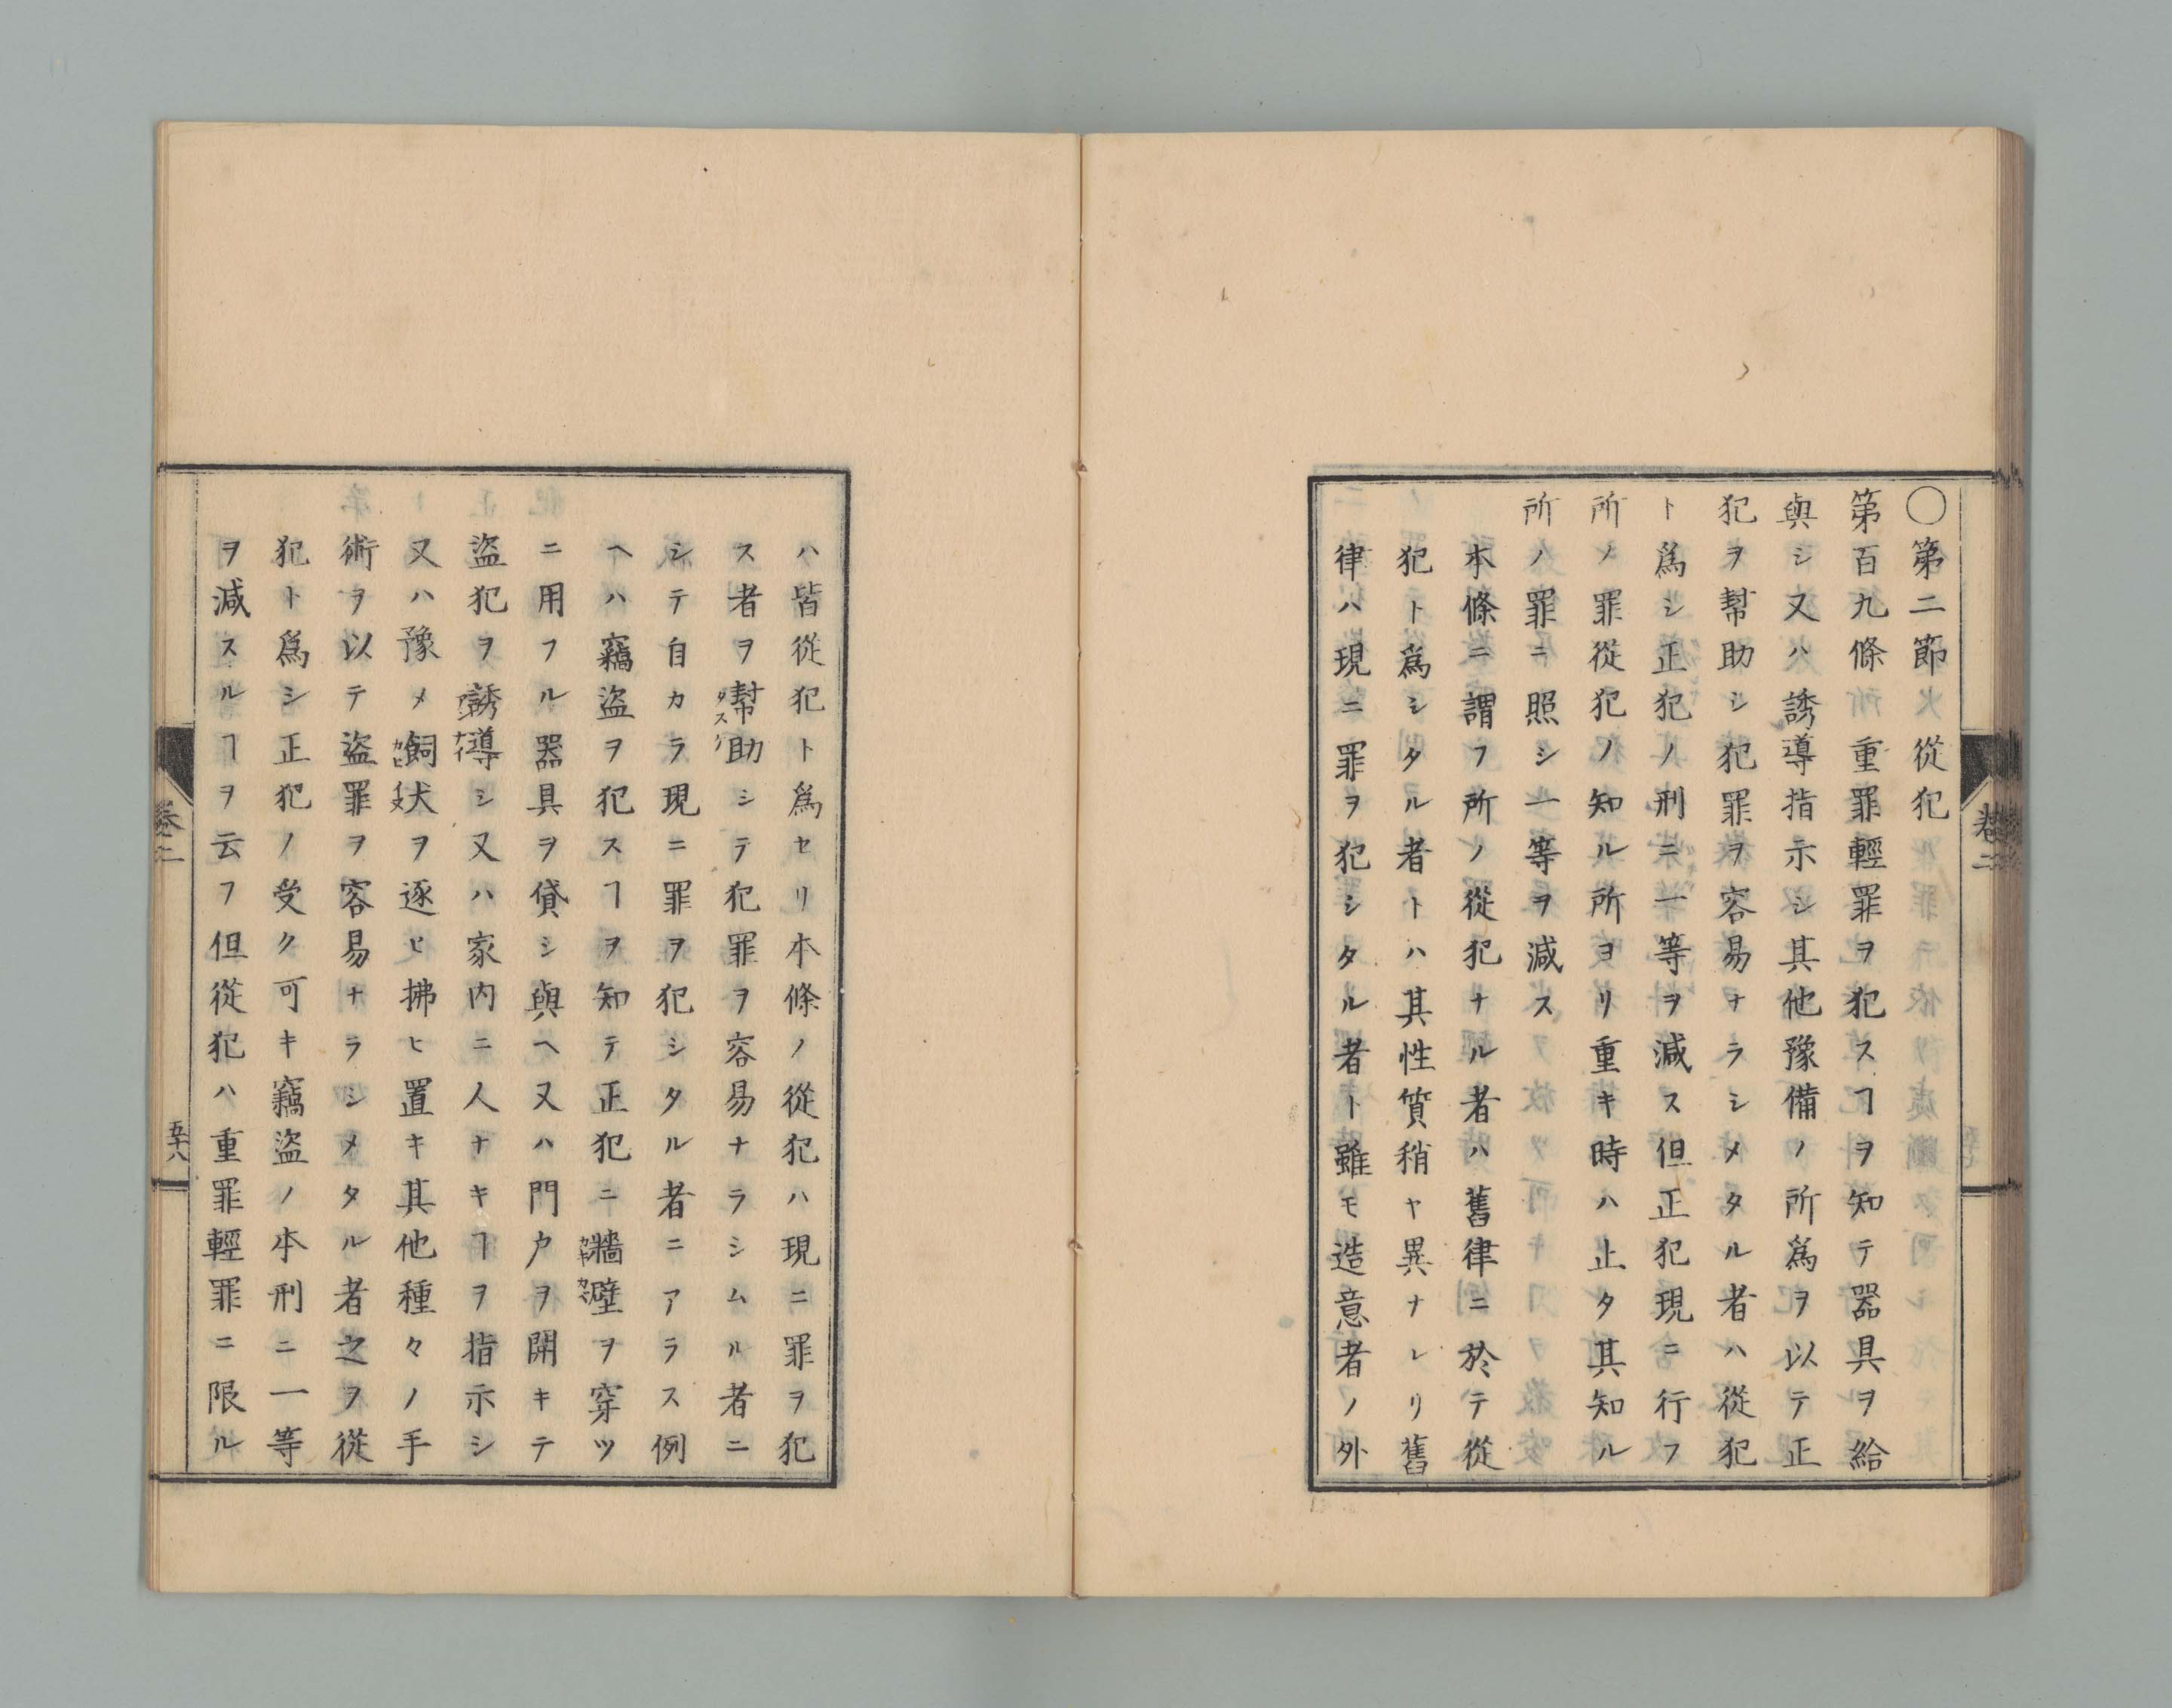 〇第二節　從犯
第百九條　重罪輕罪ヲ犯スヿヲ知テ器具ヲ給
與シ又ハ誘導指示シ其他豫備ノ所爲ヲ以テ正
犯ヲ幇助シ犯罪ヲ容易ナラシメタル者ハ從犯
ト爲シ正犯ノ刑ニ一等ヲ減ス但正犯現ニ行フ
所ノ罪從犯ノ知ル所ヨリ重キ時ハ止タ其知ル
所ノ罪ニ照シ一等ヲ減ス
本條ニ謂フ所ノ從犯ナル者ハ舊律ニ於テ從
犯ト爲シタル者トハ其性質稍ヤ異ナレリ舊
律ハ現ニ罪ヲ犯シタル者ト雖モ造意者ノ外
卷二
ハ皆從犯ト爲セリ本條ノ從犯ハ現ニ罪ヲ犯
ス者ヲ幇助シテ犯罪ヲ容易ナラシムル者ニ
シテ自カラ現ニ罪ヲ犯シタル者ニアラス例
ヘハ竊盜ヲ犯スヿヲ知テ正犯ニ牆壁ヲ穿ツ
ニ用フル器具ヲ貸シ與ヘ又ハ門戸ヲ開キテ
盜犯ヲ誘導シ又ハ家内ニ人ナキヿヲ指示シ
又ハ豫メ飼犬ヲ逐ヒ拂ヒ置キ其他種々ノ手
術ヲ以テ盜罪ヲ容易ナラシメタル者之ヲ從
犯ト爲シ正犯ノ受ク可キ竊盜ノ本刑ニ一等
ヲ減スルヿヲ云フ但從犯ハ重罪輕罪ニ限ル
卷二
五十八